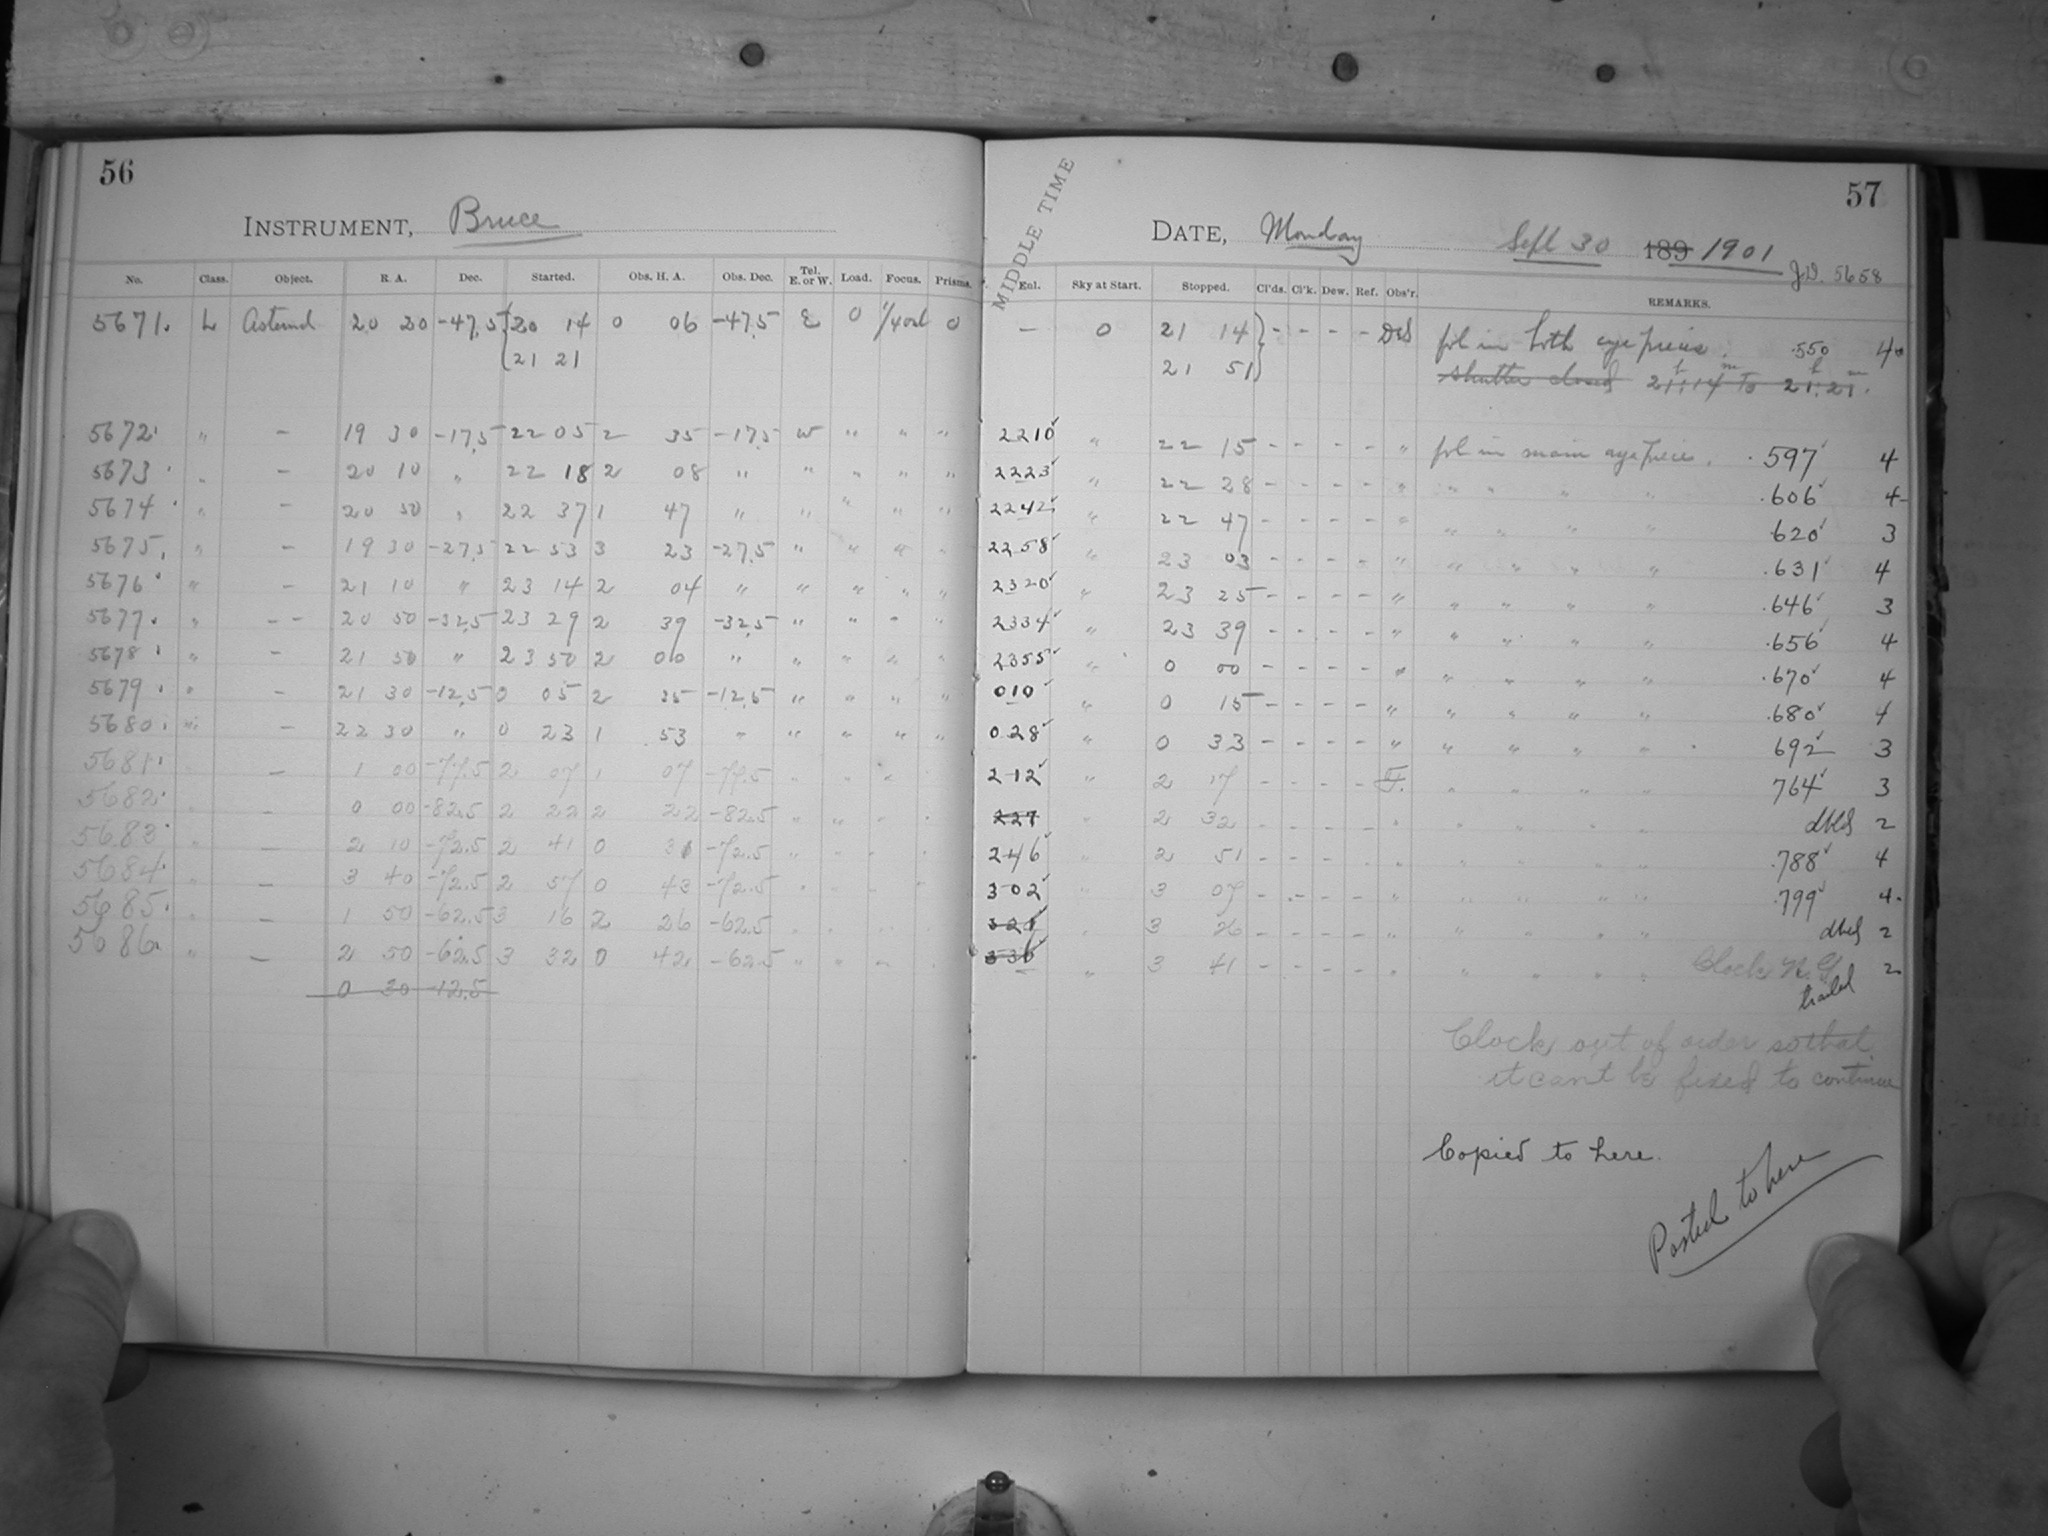 56
INSTRUMENT, Bruce
No. Class. Object. R. A. Dec. Started. Obs. H. A. Obs. Dec. Tel. E. or W. Load. Focus. Prisms.
5671. L Asteroid 20 20 -47.5 {20 14 0 06 -47.5 E 0 0
{21 21
5672 " - 19 30 -17.5 22 05 2 35 -17.5 W " " "
5673 " - 20 10 " 22 18 2 08 " " " " "
5674 " - 20 50 " 22 37 1 47 " " " " "
5675. " - 19 30 -27.5 22 53 3 23 -27.5 " " " "
5676 " - 21 10 " 23 14 2 04 " " " " "
5677. " - - 20 50 -32.5 23 29 2 39 -32.5 " " " "
5678 " - 21 50 " 23 50 2 00 " " " " "
5679 . " - 21 30 -12.5 0 05 2 35 -12.5 " " " "
5680. " - 22 30 " 0 23 1 53 " " " " "
5681. - 1 00 -77.5 2 07 1 07 -77.5 " " " "
5682. " - 0 00 -82.5 2 22 2 22 -82.5 " " " "
5683 " - 2 10 -72.5 2 41 0 31 -72.5 " " " "
5684. " - 3 40 -72.5 2 57 0 43 -72.5 " " " "
5685. " - 1 50 -62.5 3 16 2 26 -62.5 " " " "
5686. " - 2 50 -62.5 3 32 0 42 -62.5 " " " "
0 30 -12.5
57
MIDDLE TIME
DATE, Monday Sept 30 189 1901
J.D. 5658
Exl. Sky at Start. Stopped. Cl'ds. Cl'k. Dew. Ref. Obs'r. REMARKS.
— 0 21 14} - - - - fol in both eye pieces. .550 40
21 51} shutter closed 21h:14m to 21h:21m.
2210 " 22 15 - - - - " fol in main eyepiece. .597 4
2223 " 22 28 - - - - " " " " " .606 4
2242 " 22 47 - - - - " " " " " 620 3
2258 " 23 03 - - - - " " " " " .631 4
2320 " 23 25 - - - - " " " " " .646 3
2334 " 23 39 - - - - " " " " " .656 4
2355 " 0 00 - - - - " " " " " .670 4
010 " 0 15 - - - - " " " " " .680 4
028 " 0 33 - - - - " " " " " 692 3
212 " 2 17 - - - - F. " " " " 764 3
227 " 2 32 - - - - " " " " " dbld 2
246 " 2 51 - - - - " " " " " .788 4
302 " 3 07 - - - - " " " " " .799 4.
321 " 3 26 - - - - " " " " " dbld 2
336 " 3 41 - - - - " " " " " Clock N. G. 2
trailed
Clock out of order so that
it cant be fixed to continue
Copied to here.
Posted to here